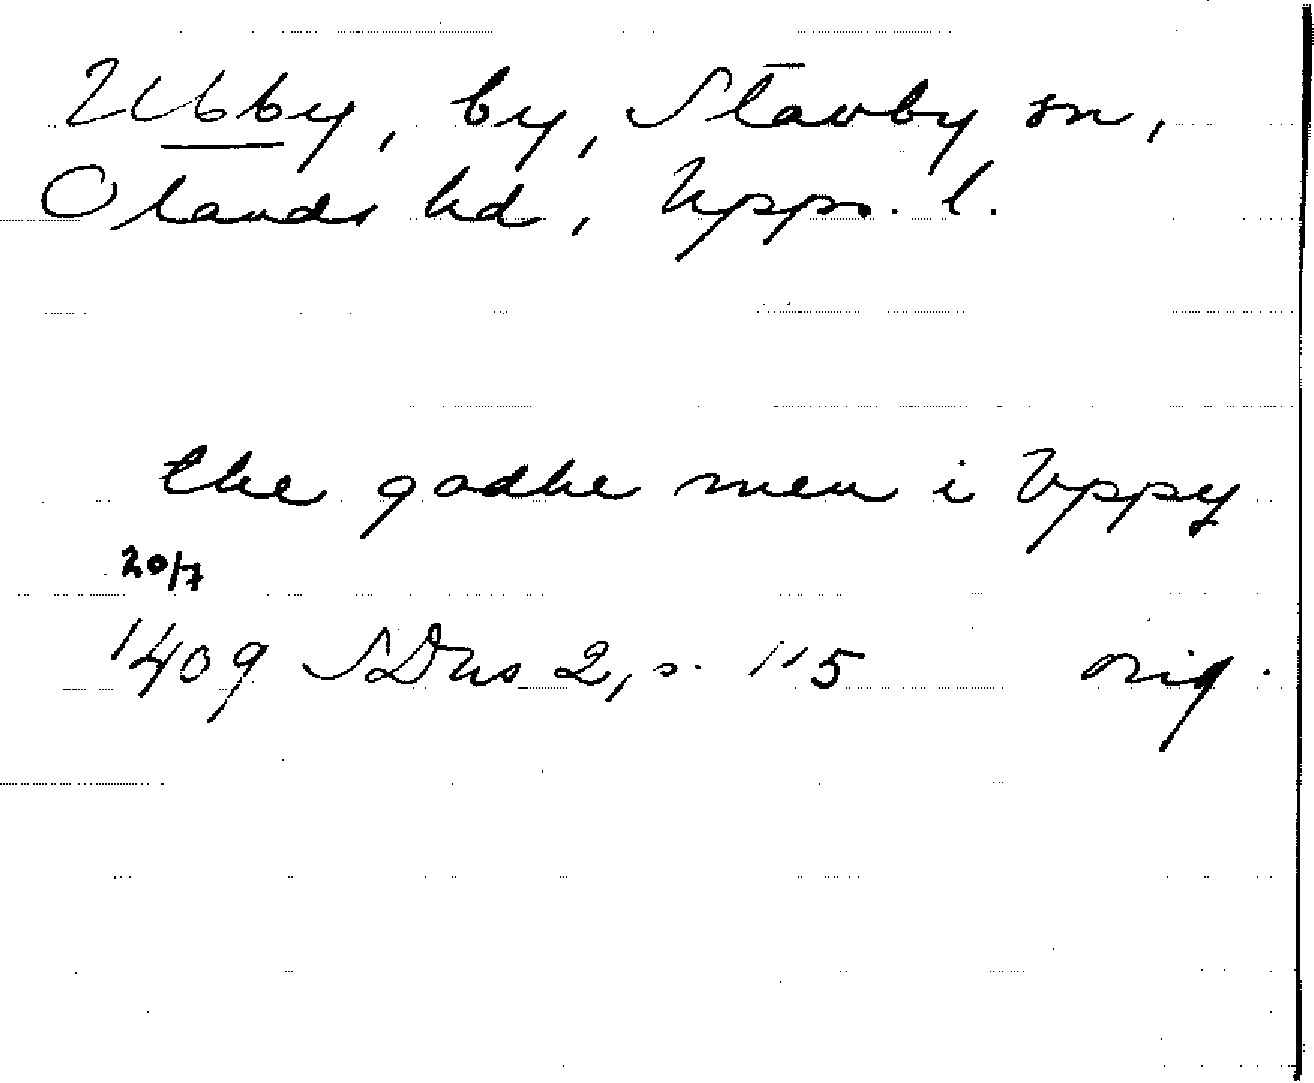 Ubby, by, Stavby sn,
Olands hd, Upps. l.
the godhe men i Vppy
20/7
1409 SDns 2, s. 115 orig.